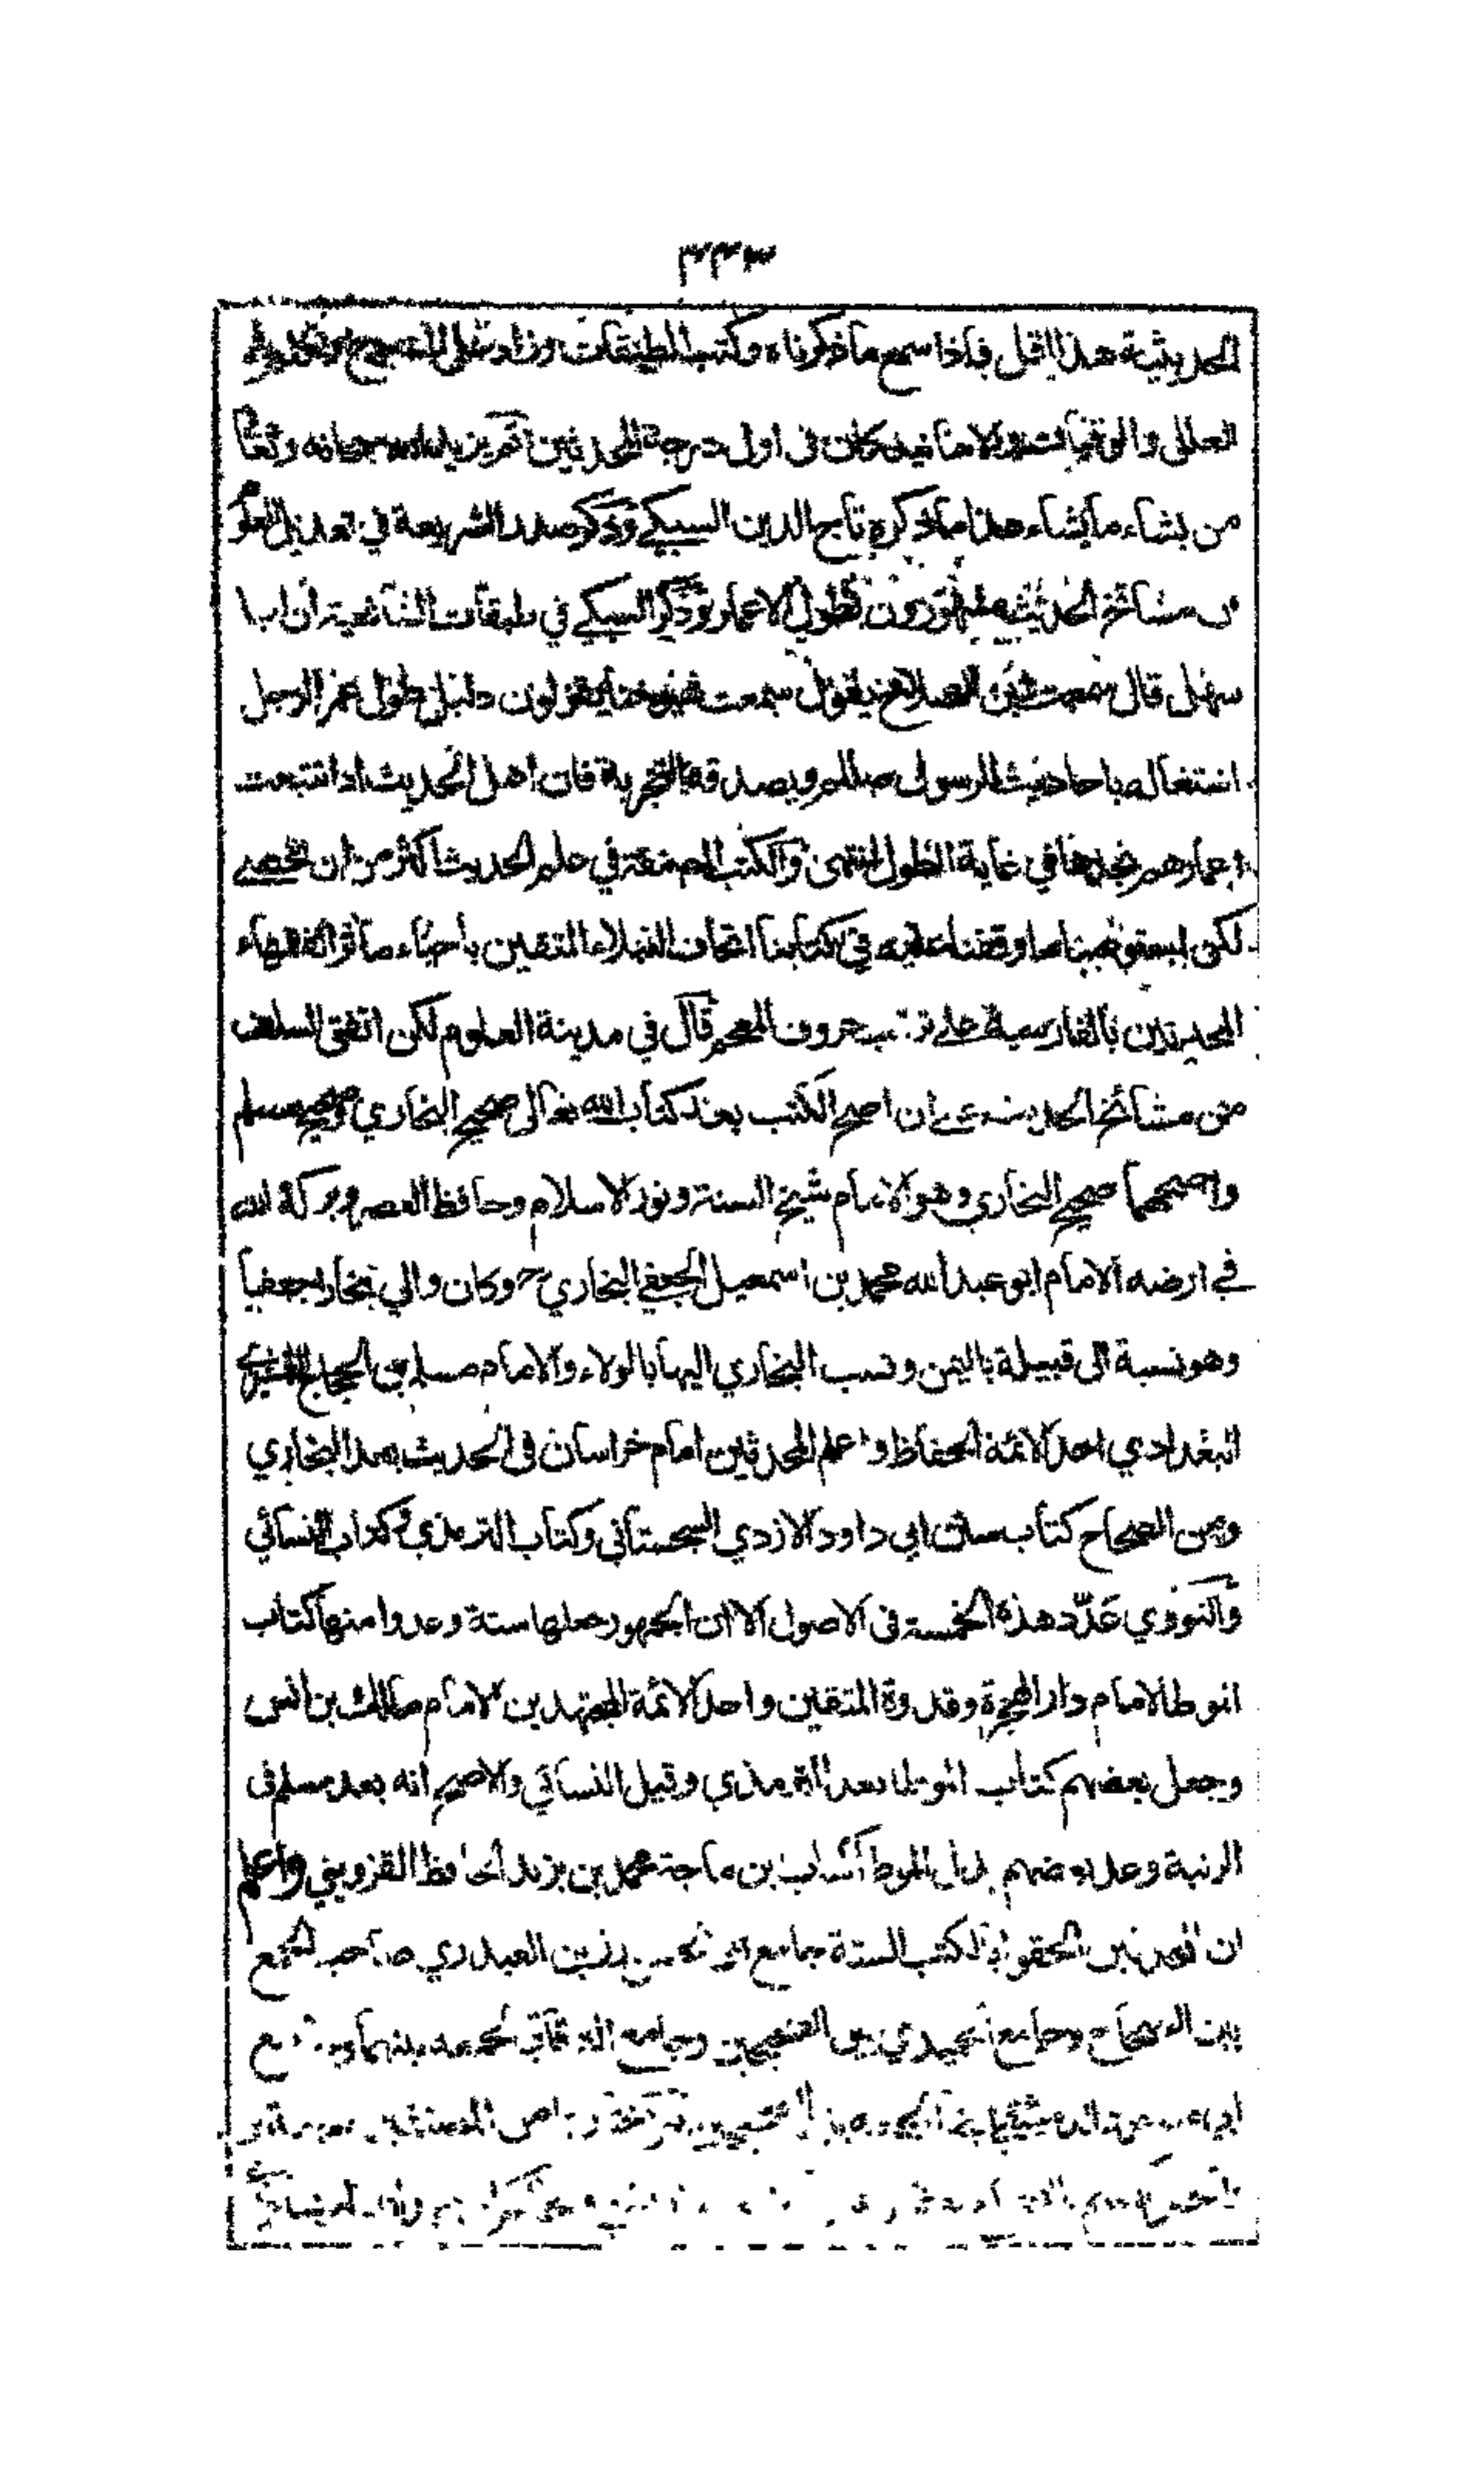 ٣٣٣
الحديثية هذا اقل فاذا سمع ما ذكرناه وكتب الطبقات وزاد على الشيوخ وتكلم في
العلل والوفيات والاسانيد كان في اول درجة المحدثين ثم يزيد الله سبحانه وتعالى
من يشاء ما يشاء هذا ما ذكره تاج الدين السبكي وذكر صدر الشريعة في تعديل العلوم
ان مشائخ الحديث مشهورون بطول الاعمار وذكر السبكي في طبقات الشافعية ان ابا
سهل قال سمعت ابن الصلاح يقول سمعت شيوخنا يقولون دليل طول عمر الرجل
اشتغاله باحاديث الرسول صللم ويصدقه التجربة فان اهل الحديث اذا تتبعت
اعمارهم تجدها في غاية الطول انتهى والكتب المصنفة في علم الحديث اكثر من ان تحصى
لكن استوعبنا ما وقفنا عليه في كتابنا اتحاف النبلاء المتقين باحياء مآثر الفقهاء
المحدثين بالفارسية على ترتيب حروف المعجم قال في مدينة العلوم لكن اتفق السلف
من مشائخ الحديث على ان اصح الكتب بعد كتاب الله تعالى صحيح البخاري وصحيح مسلم
واصحهما صحيح البخاري وهو الامام شيخ السنة ونور الاسلام وحافظ العصر وبركة الله
في ارضه الامام ابو عبد الله محمد بن اسمعيل الجعفي البخاري رح وكان والي بخارا جعفيا
وهو نسبة الى قبيلة باليمن ونسب البخاري اليها بالولاء والامام مسلم بن الحجاج القشيري
البغدادي احد الائمة الحفاظ واعلم المحدثين امام خراسان في الحديث بعد البخاري
ومن الصحاح كتاب سنن ابي داود الازدي السجستاني وكتاب الترمذي وكتاب النسائي
والنووي عدّد هذه الخمسة في الاصول الا ان الجمهور جعلها ستة وعدوا منها كتاب
الموطا لامام دار الهجرة وقدوة المتقين واحد الائمة المجتهدين الامام مالك بن انس
وجعل بعضهم كتاب الموطا بعد الترمذي وقيل النسائي والاصح انه بعد مسلم في
الرتبة وعد بعضهم بدل الموطا كتاب ابن ماجة محمد بن يزيد الحافظ القزويني واعلم
ان المحدثين الحقوا بالكتب الستة جامع ابي الحسن رزين العبدري صاحب الجمع
بين الصحاح وجامع الحميدي بين الصحيحين وجامع البرقاني لجمعه بينهما